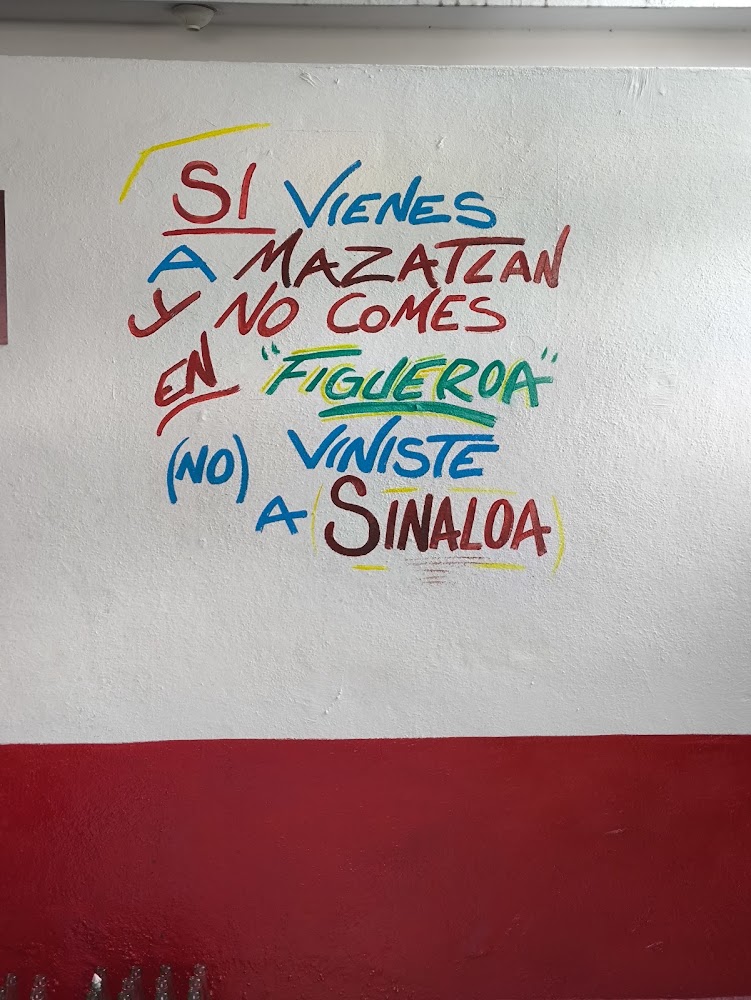 SI VIENES
A MAZATLAN
Y NO COMES
EN "FIGUEROA"
(NO) VINISTE
A (SINALOA)